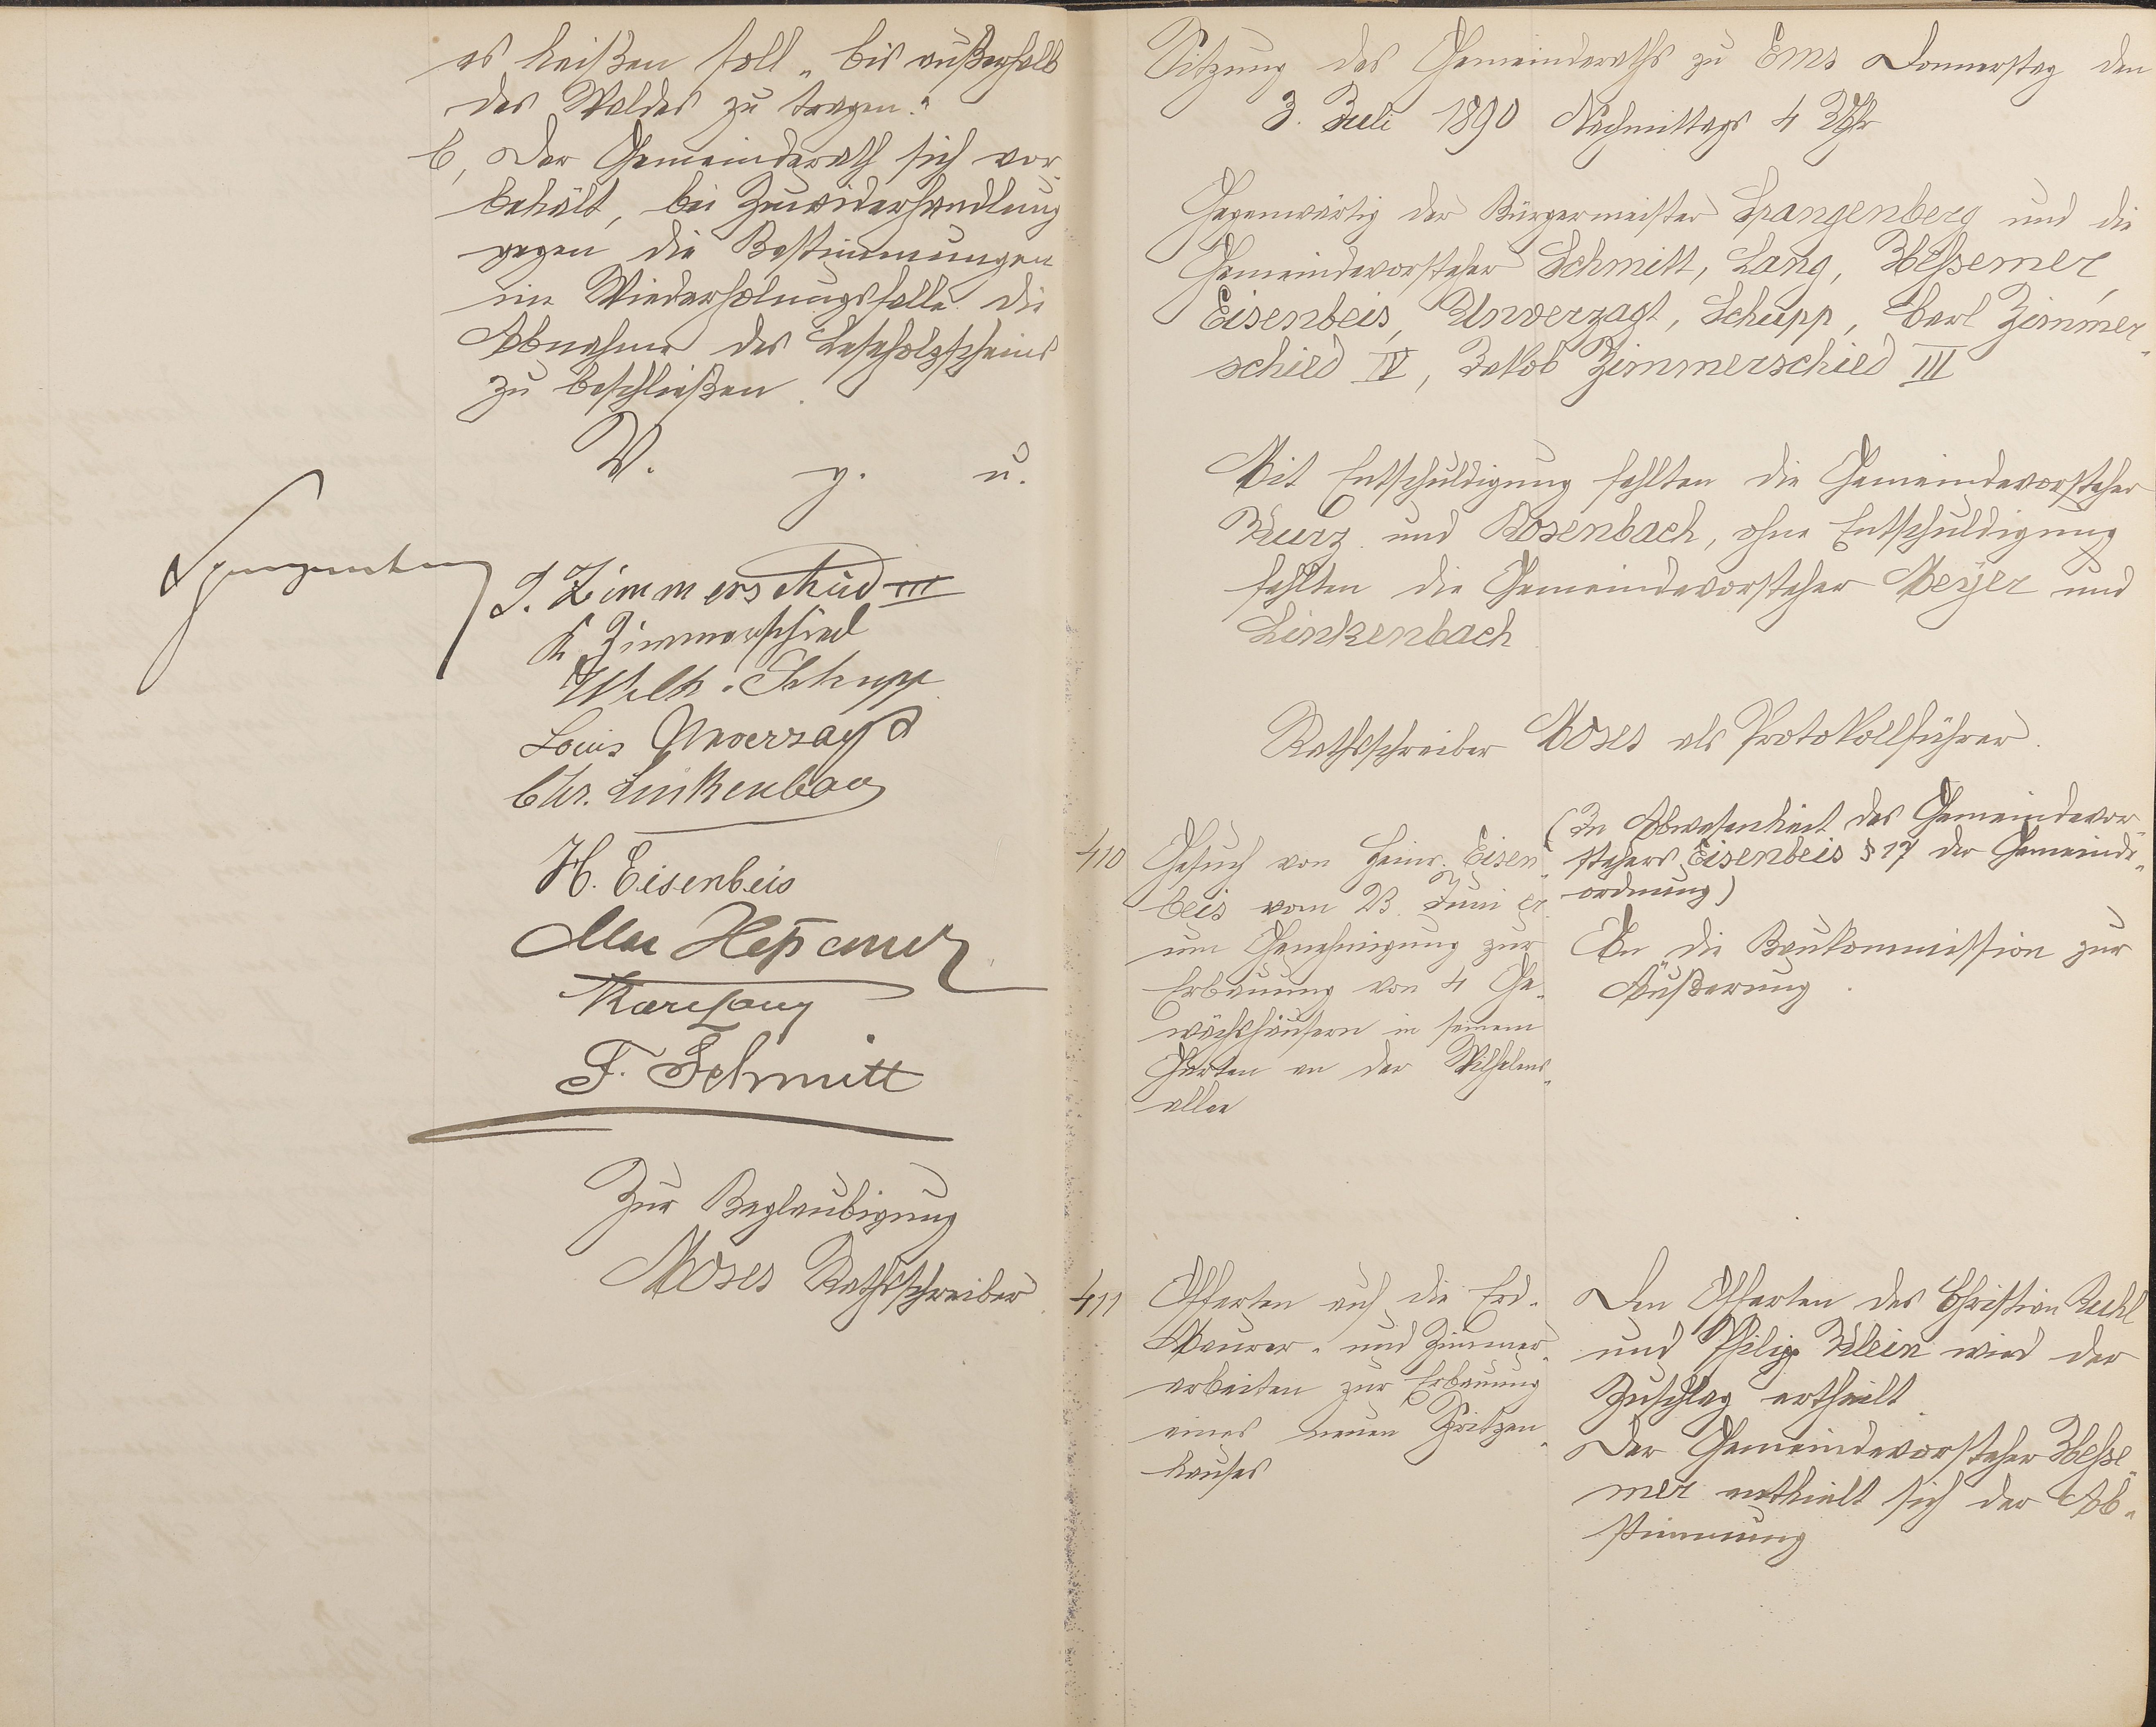 es heißen soll „bis außerhalb
des Waldes zu tragen."
b, Der Gemeinderath sich vor-
behält, bei Zuwiderhandlung
gegen die Bestimmungen
im Wiederholungsfalle die
Abnahme des Leseholzscheins
zu beschließen.
V. g. u.
Spangenberg
J. Zimmerschied III
K. Zimmerschied
Wilh. Schupp
Louis Unverzagt
Chr. Linkenbach
H. Eisenbeis
Heßemer
Karl Lang
F. Schmitt
Zur Beglaubigung
Moses Rathsschreiber
Sitzung des Gemeinderaths zu Ems Donnerstag den
3. Juli 1890 Nachmittags 4 Uhr
Gegenwärtig der Bürgermeister Spangenberg und die
Gemeindevorsteher Schmitt, Lang, Heßemer,
Eisenbeis, Unverzagt, Schupp, Carl Zimmer-
schied IV, Jakob Zimmerschied III
Mit Entschuldigung fehlten die Gemeindevorsteher
Kurz und Rosenbach, ohne Entschuldigung
fehlten die Gemeindevorsteher Meyer und
Linkenbach
Rathsschreiber Moses als Protokollführer.
410 Gesuch von Heinr. Eisen-
beis vom 23. Juni cr.
um Genehmigung zur
Erbauung von 4 Ge-
wächshäusern in seinem
Garten an der Wilhelms-
allee
(In Abwesenheit des Gemeindevor-
stehers Eisenbeis § 17 der Gemeinde-
ordnung)
An die Baukommission zur
Äußerung.
411 Offerten auf die Erd-
Maurer- und Zimmer-
arbeiten zur Erbauung
eines neuen Spritzen-
hauses
Den Offerten des Christian Ruhl
und Philipp Klein wird der
Zuschlag ertheilt
Der Gemeindevorsteher Heße-
mer enthielt sich der Ab-
stimmung